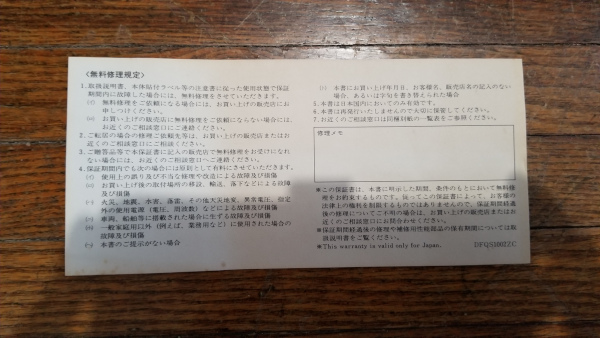 〈無料修理規定〉
1.取扱説明書、本体貼付ラベル等の注意書に従った使用状態で保証
期間内に故障した場合には、無料修理をさせていただきます。
(イ) 無料修理をご依頼になる場合には、お買い上げの販売店にお
申しつけください。
(ロ) お買い上げの販売店に無料修理をご依頼にならない場合には、
お近くのご相談窓口にご連絡ください。
2.ご転居の場合の修理ご依頼先等は、お買い上げの販売店またはお
近くのご相談窓口にご相談ください。
3.ご贈答品等で本保証書に記入の販売店で無料修理をお受けになれ
ない場合には、お近くのご相談窓口へご連絡ください。
4.保証期間内でも次の場合には原則として有料にさせていただきます。
(イ) 使用上の誤り及び不当な修理や改造による故障及び損傷
(ロ) お買い上げ後の取付場所の移設、輸送、落下などによる故障
及び損傷
(ハ) 火災、地震、水害、落雷、その他天災地変、異常電圧、指定
外の使用電源(電圧、周波数)などによる故障及び損傷
(ニ) 車両、船舶等に搭載された場合に生ずる故障及び損傷
(ホ) 一般家庭用以外(例えば、業務用など)に使用された場合の
故障及び損傷
(ヘ) 本書のご提示がない場合
(ト) 本書にお買い上げ年月日、お客様名、販売店名の記入のない
場合、あるいは字句を書き替えられた場合
5.本書は日本国内においてのみ有効です。
6.本書は再発行いたしませんので大切に保管してください。
7.お近くのご相談窓口は同梱別紙の一覧表をご参照ください。
修理メモ
※この保証書は、本書に明示した期間、条件のもとにおいて無料修
理をお約束するものです。従ってこの保証書によって、お客様の
法律上の権利を制限するものではありませんので、保証期間経過
後の修理についてご不明の場合は、お買い上げの販売店またはお
近くのご相談窓口にお問合わせください。
※保証期間経過後の修理や補修用性能部品の保有期間については取
扱説明書をご覧ください。
※This warranty is valid only for Japan.
DFQS1002ZC